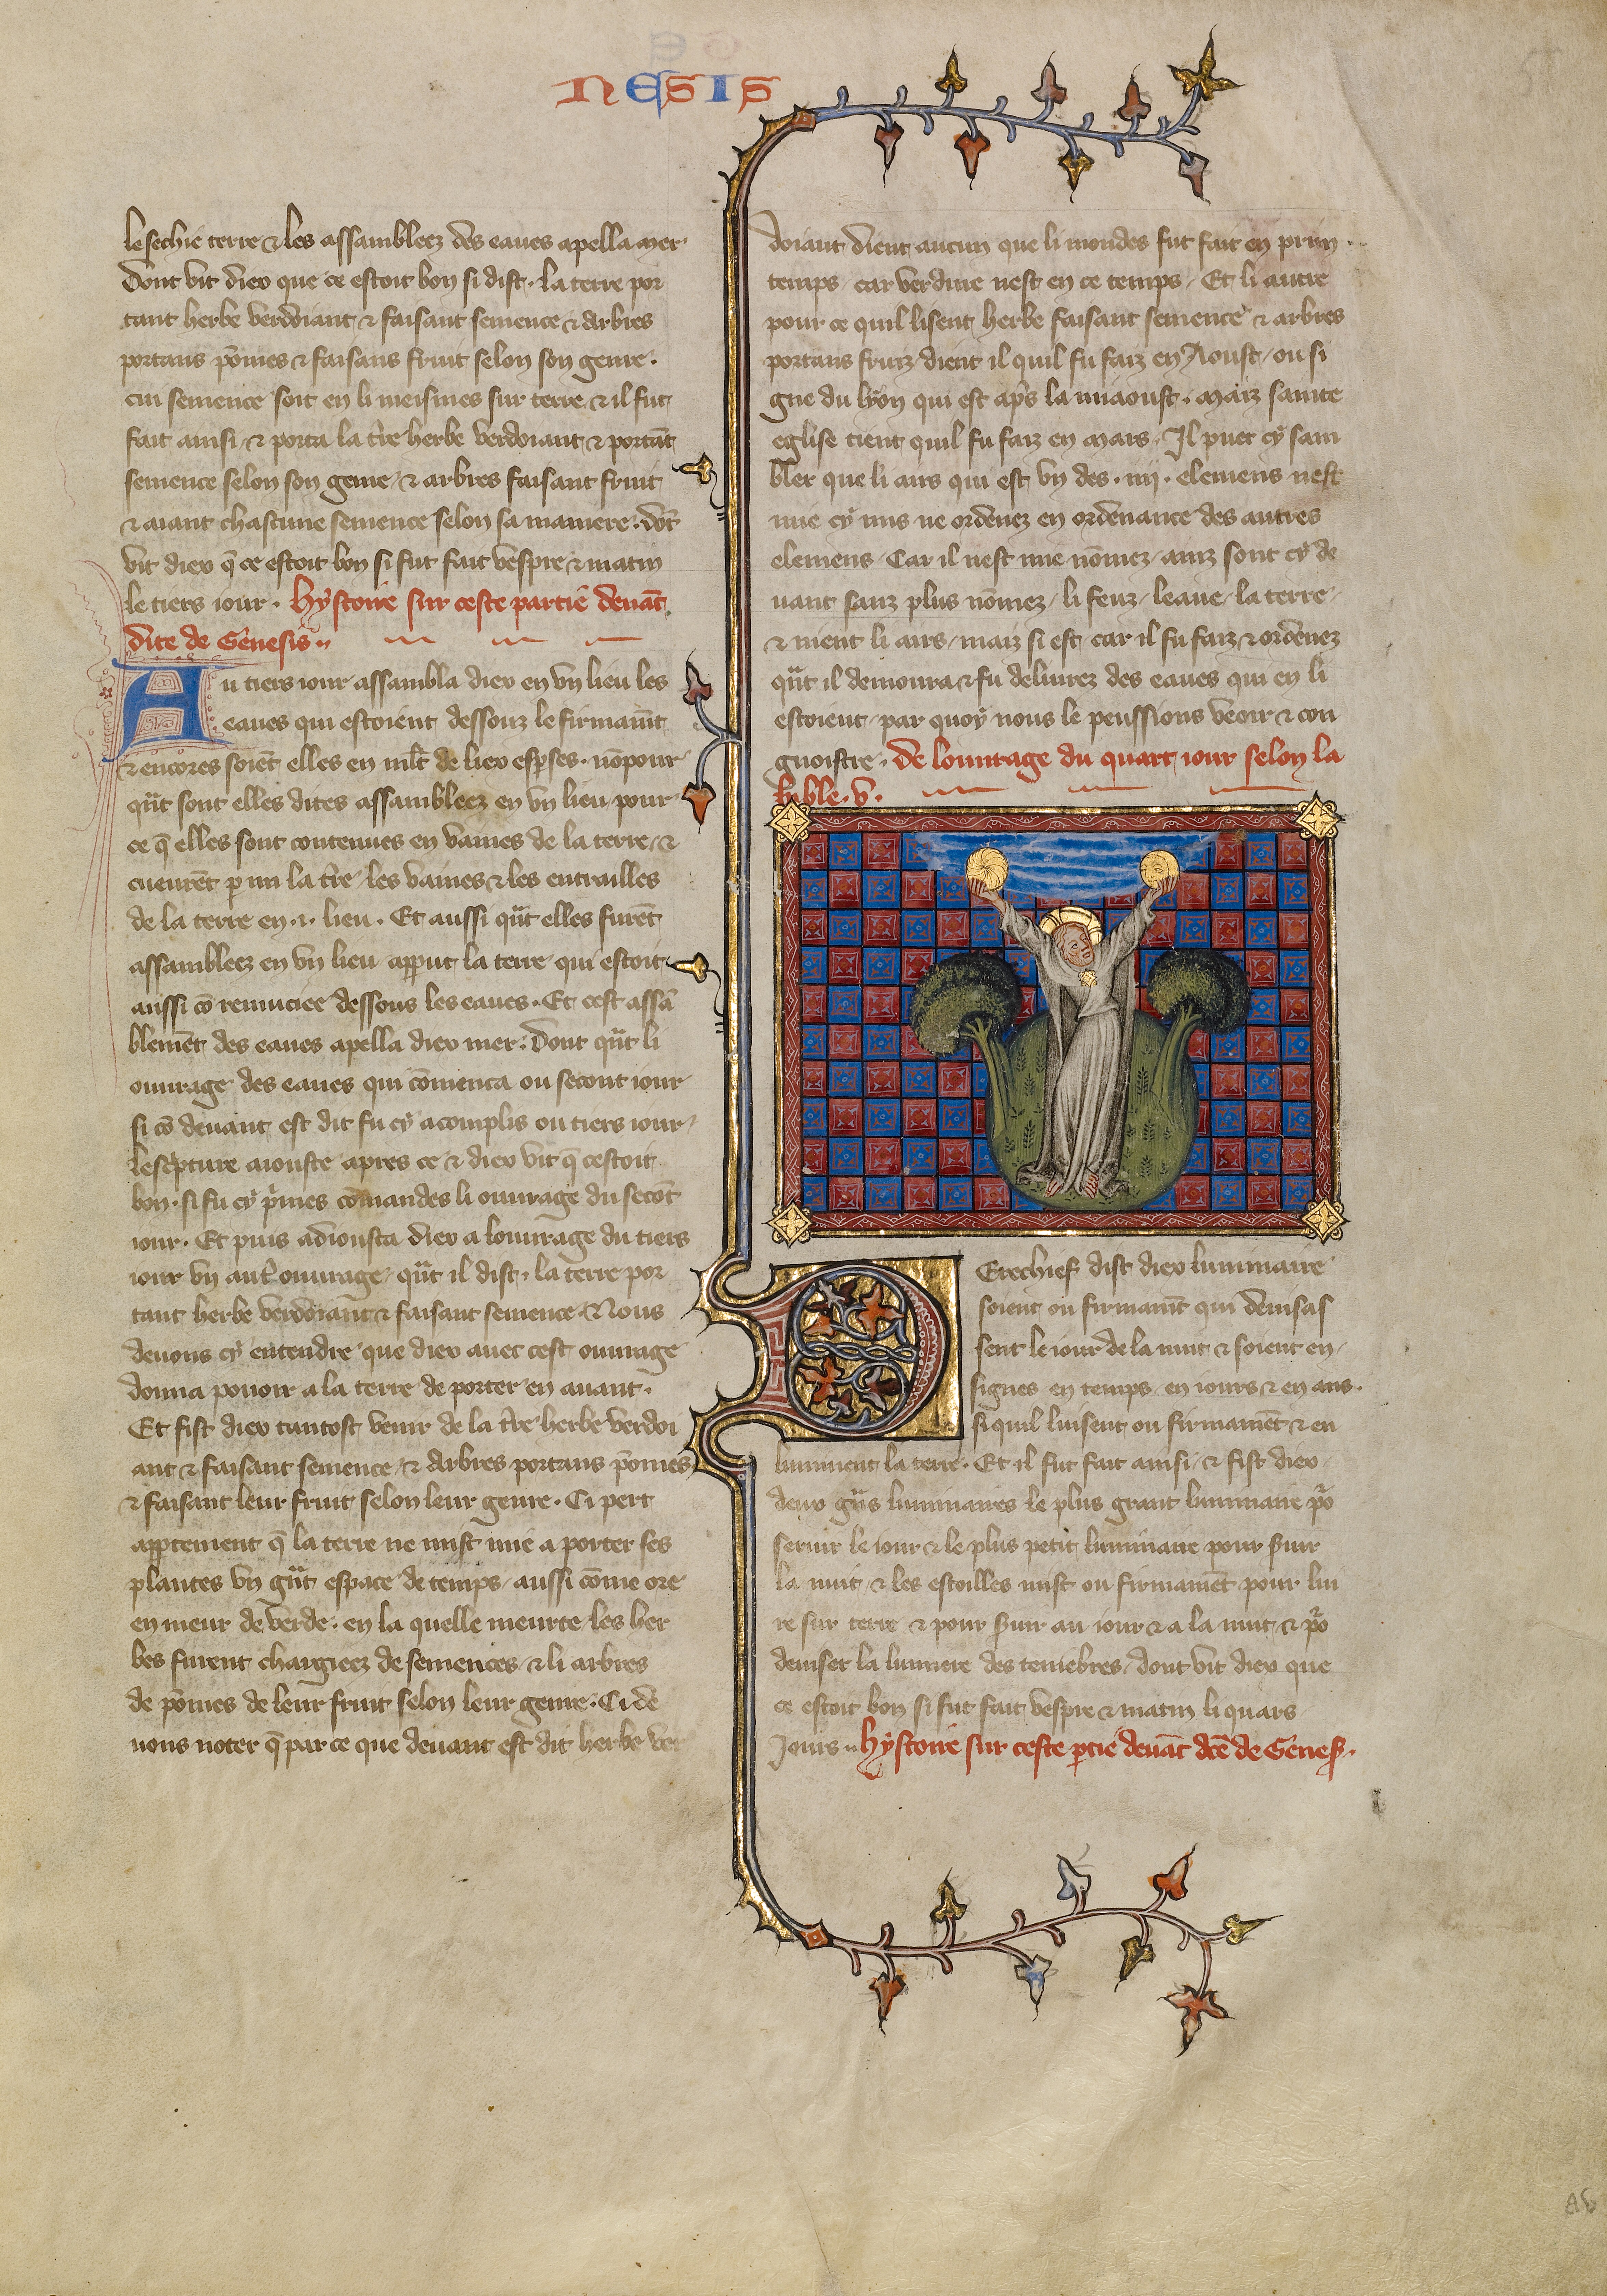 NESIS
le sechie terre & les assambleez des eaues apella mer.
Dont vit diex que ce estoit bon si dist. la terre por
tant herbe verdoiant & faisant semence & arbres
portans pōmes & faisans fruit selon son genre.
cui semence soit en li meismes sur terre & il fut
fait ainsi / & porta la t̾re herbe verdoiant & portāt
semence selon son genre / & arbres faisant fruit
& aiant chascune semence selon sa maniere. dōt
vit diex q̄ ce estoit bon si fut fait vespre & matin
le tiers iour. hystoire sur ceste partie deuāt
dite de Genesis..
Au tiers iour assambla diex en vn lieu les
eaues qui estoient dessouz le firmamt̄
& encores soiēt elles en mlt̄ de liex esp̄ses. nōpour
qūt sont elles dites assambleez en vn lieu pour
ce q̄ elles sont contenues en vaines de la terre / &
cueurēt p mi la t̾re / les vaines & les entrailles
de la terre en .i. lieu. Et aussi qūt elles furēt
assambleez en vn lieu / apparut la terre qui estoit
aussi cō remuciee dessous les eaues. Et cest assā
blemēt des eaues apella diex mer. Dont qūt li
ouurage des eaues qui cōmenca ou secont iour
si cō deuant est dit fu cy acomplis ou tiers iour /
lescpture aiouste apres ce & diex vit q̄ cestoit
bon. si fu cy p̄mes cōmandes li ouurage du secōt
iour. Et puis adiousta diex a louurage du tiers
iour vn aut̾ ouurage / qūt il dist. la terre por
tant herbe verdoiant & faisant semence. Nous
deuons cy entendre que diex auec cest ouurage
donna pouoir a la terre de porter en auant.
Et fist diex tantost venir de la t̾re herbe verdoi
ant & faisant semence / & arbres portans pōmes
& faisant leur fruit selon leur genre. Ci pert
appertement q̄ la terre ne mist mie a porter ses
plantes vn gūt espace de temps / aussi cōme ore
en meur de verde. en la quelle meurte les her
bes furent chargieez de semences / & li arbres
de pōmes de leur fruit selon leur genre. Ci de
uons noter q̄ par ce que deuant est dit herbe ver
doiant dient aucun que li mondes fut fait en prin
temps / car verdure nest en ce temps / Et li autre
pour ce quil lisent herbe faisant semence & arbres
portans fruiz dient il quil fu faiz en Aoust / ou si
gne du lyon qui est ap̄s la miaoust. Maiz sainte
eglise tient quil fu faiz en mars. Il puet cy sam
bler que li airs qui est vn des .iiij. elemens nest
mie cy mis ne ordenez en ordenance des autres
elemens / Car il nest mie nōmez / ainz sont cy de
uant sanz plus nōmez / li feuz / leaue / la terre /
& nient li airs / maiz si est car il fu faiz & ordenez
qūt il demoura & fu deliurez des eaues qui en li
estoient / par quoy nous le peussions veoir & con
gnoistre. De louurage du quart iour selon la
bible. v.
Derechief dist diex luminaire
soient ou firmamt̄ qui deuisas
sent le iour de la nuit & soient en /
signes en temps en iours & en ans.
si quil luisent ou firmamēt & en
luminent la terre. Et il fut fait ainsi / & fist diex /
deux gūs luminaires le plus grant luminaire po᷑
seruir le iour & le plus petit luminaire pour s̄uir
la nuit / & les estoilles mist ou firmamēt pour lui
re sur terre & pour s̄uir au iour & a la nuit / & po᷑
deuiser la lumiere des tenebres / dont vit diex que
ce estoit bon si fut fait vespre & matin li quars
Jours.. hystoire sur ceste p̄tie deuāt dcē de Genes̄.